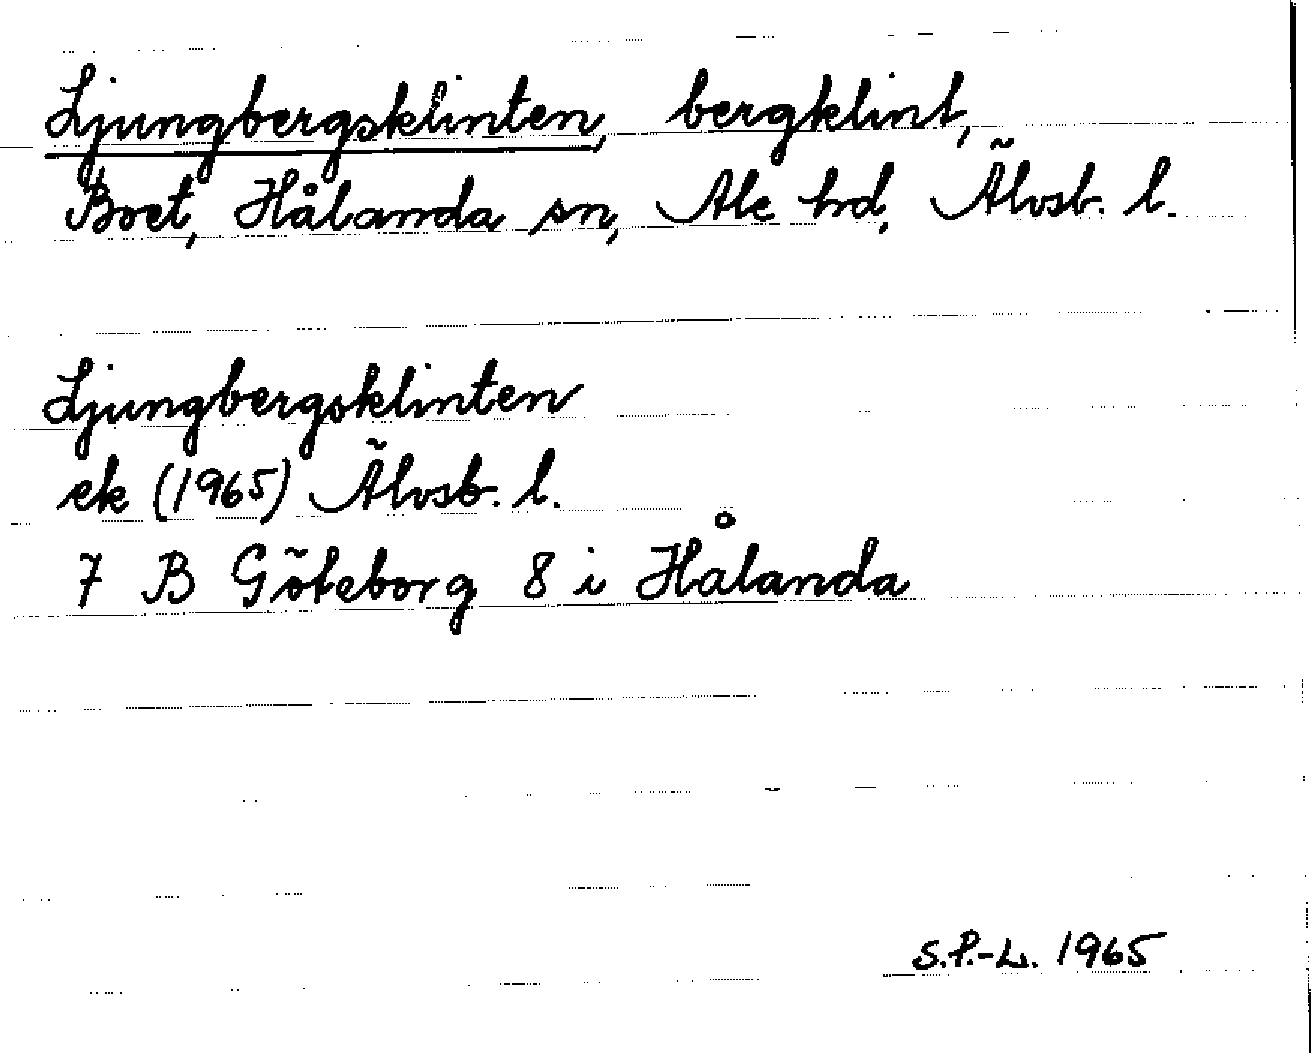 Ljungbergsklinten, bergklint,
Boet, Hålanda sn, Ale hd, Älvsb. l.
Ljungbergsklinten
ek (1965) Älvsb. l.
7 B Göteborg 8 i Hålanda
S.P.-L. 1965